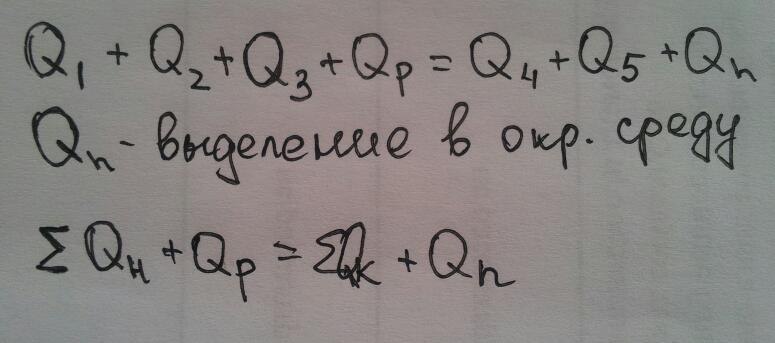 Q₁ + Q₂ + Q₃ + Qр = Q₄ + Q₅ + Qп
Qп - выделение в окр. среду
Σ Qн + Qр = ΣQк + Qп